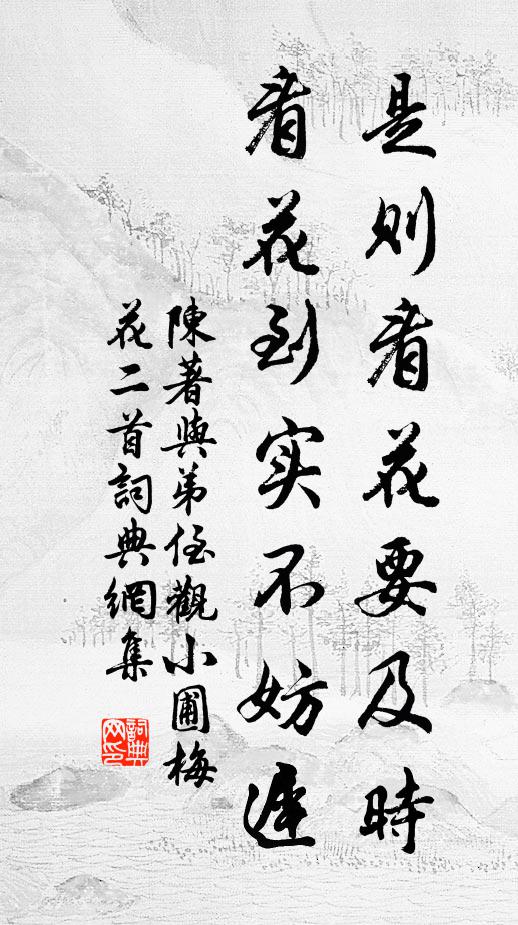 是则看花要及時
看花到实不妨遲
陳著與弟侄觀小圃梅
花二首詞典網集
詞典
网印